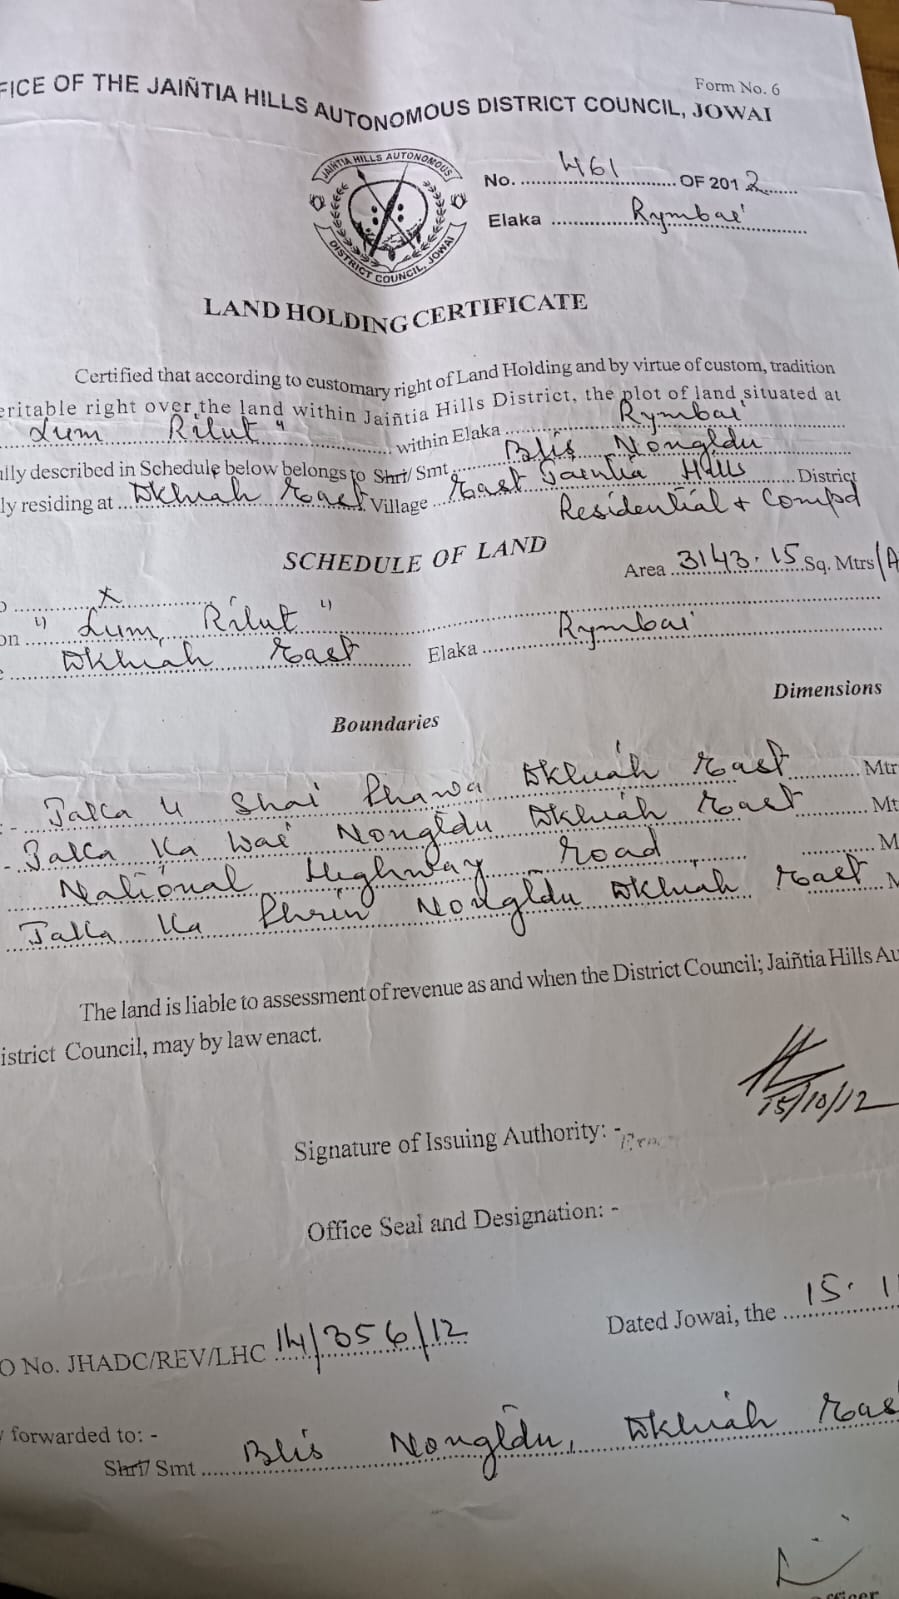 Form No. 6
FICE OF THE JAIÑTIA HILLS AUTONOMOUS DISTRICT COUNCIL, JOWAI
JAIÑTIA HILLS AUTONOMOUS
DISTRICT COUNCIL, JOWAI
No. 461 OF 2012
Elaka Rymbai
LAND HOLDING CERTIFICATE
Certified that according to customary right of Land Holding and by virtue of custom, tradition
eritable right over the land within Jaiñtia Hills District, the plot of land situated at
Lum Rilut" within Elaka Rymbai
ully described in Schedule below belongs to Shri/ Smt. Blis Nongldu
ly residing at Dkhiah East Village East Jaintia Hills District
Residential + Compd
SCHEDULE OF LAND
Area 3143.15 Sq. Mtrs/(A
x
on "Lum Rilut"
Dkhiah East Elaka Rymbai
Boundaries Dimensions
:- Jaka U Shai Phawa Dkhiah East Mtr
- Jaka Ka Wai Nongldu Dkhiah East Mt
National Highway Road M
Jaka Ka Phrin Nongldu Dkhiah East M
The land is liable to assessment of revenue as and when the District Council; Jaiñtia Hills Au
istrict Council, may by law enact.
15/10/12
Signature of Issuing Authority: -
Office Seal and Designation: -
Dated Jowai, the 15. 1
O No. JHADC/REV/LHC 14/356/12
forwarded to: -
Shri/ Smt Blis Nongldu, Dkhiah Eas